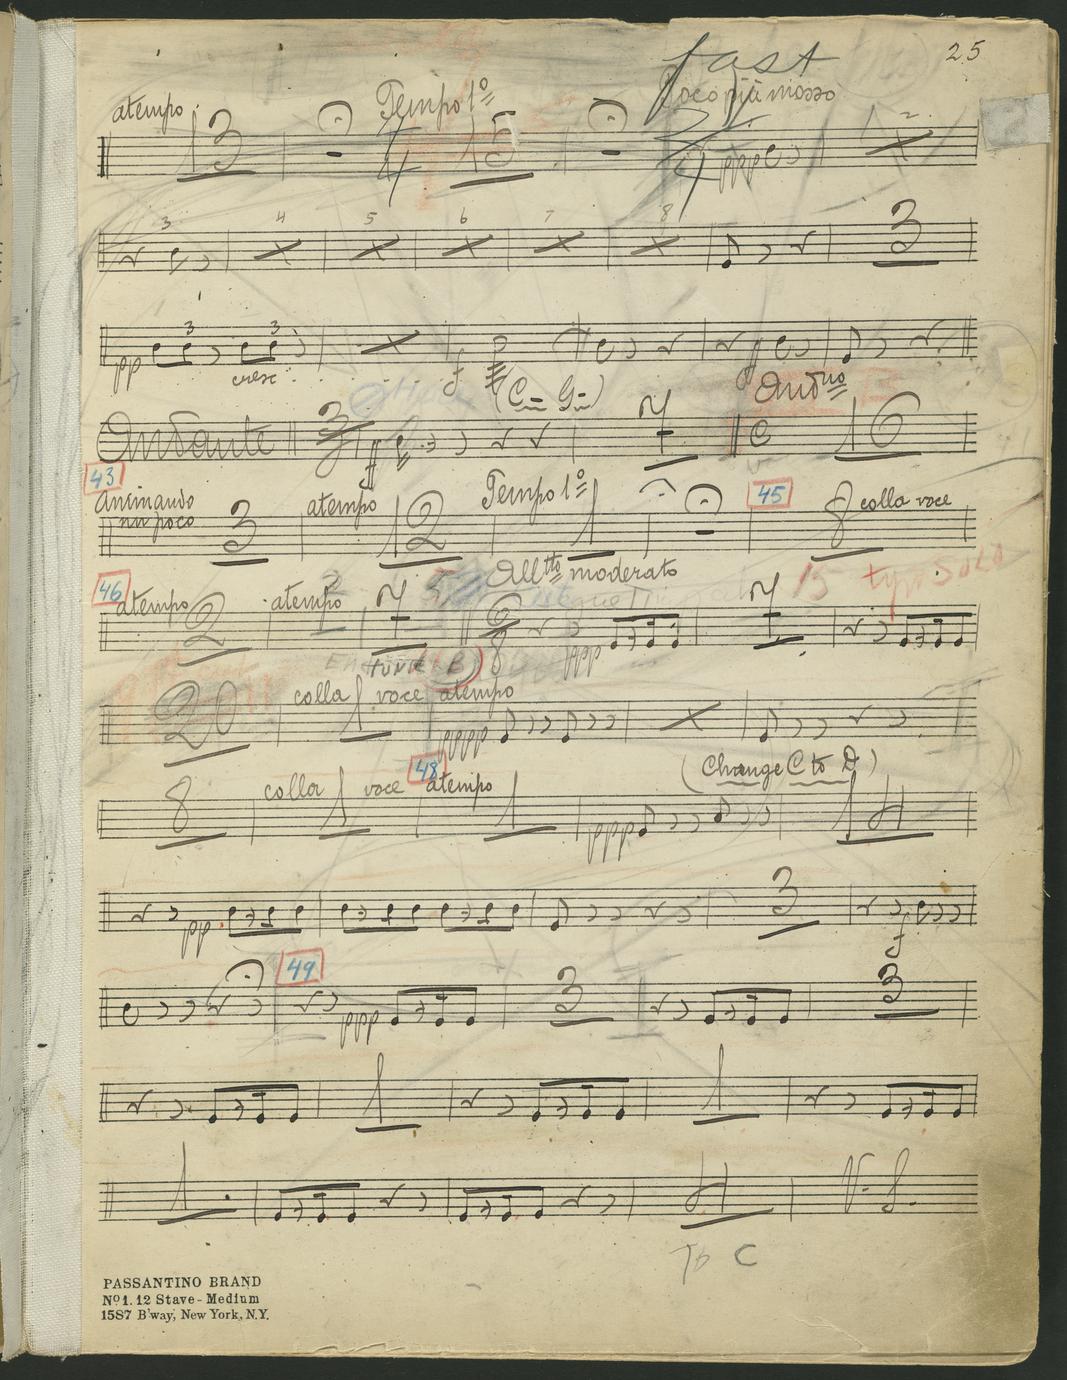 25
fast
atempo 13 Tempo 1º 4 15 Poco più mosso 3/4 ppp 2
3 4 5 6 7 8 3
pp 3 3 cresc f ff
(C= G=) And.no
Andante 3 ff 7 C 16
43
animando un poco 3 atempo 12 Tempo 1º 1 45 8 colla voce
46 atempo 2 atempo 7 All.tto moderato 6/8 ppp 7 15 tym SOLO
20 colla 1 voce atempo pppp
(Change C to D)
8 colla 1 voce 48 atempo 1 ppp 14
pp 3 f
49 ppp 3 3
1 1
1 4 V.S.
To C
PASSANTINO BRAND
Nº 1. 12 Stave - Medium
1587 B'way, New York, N.Y.